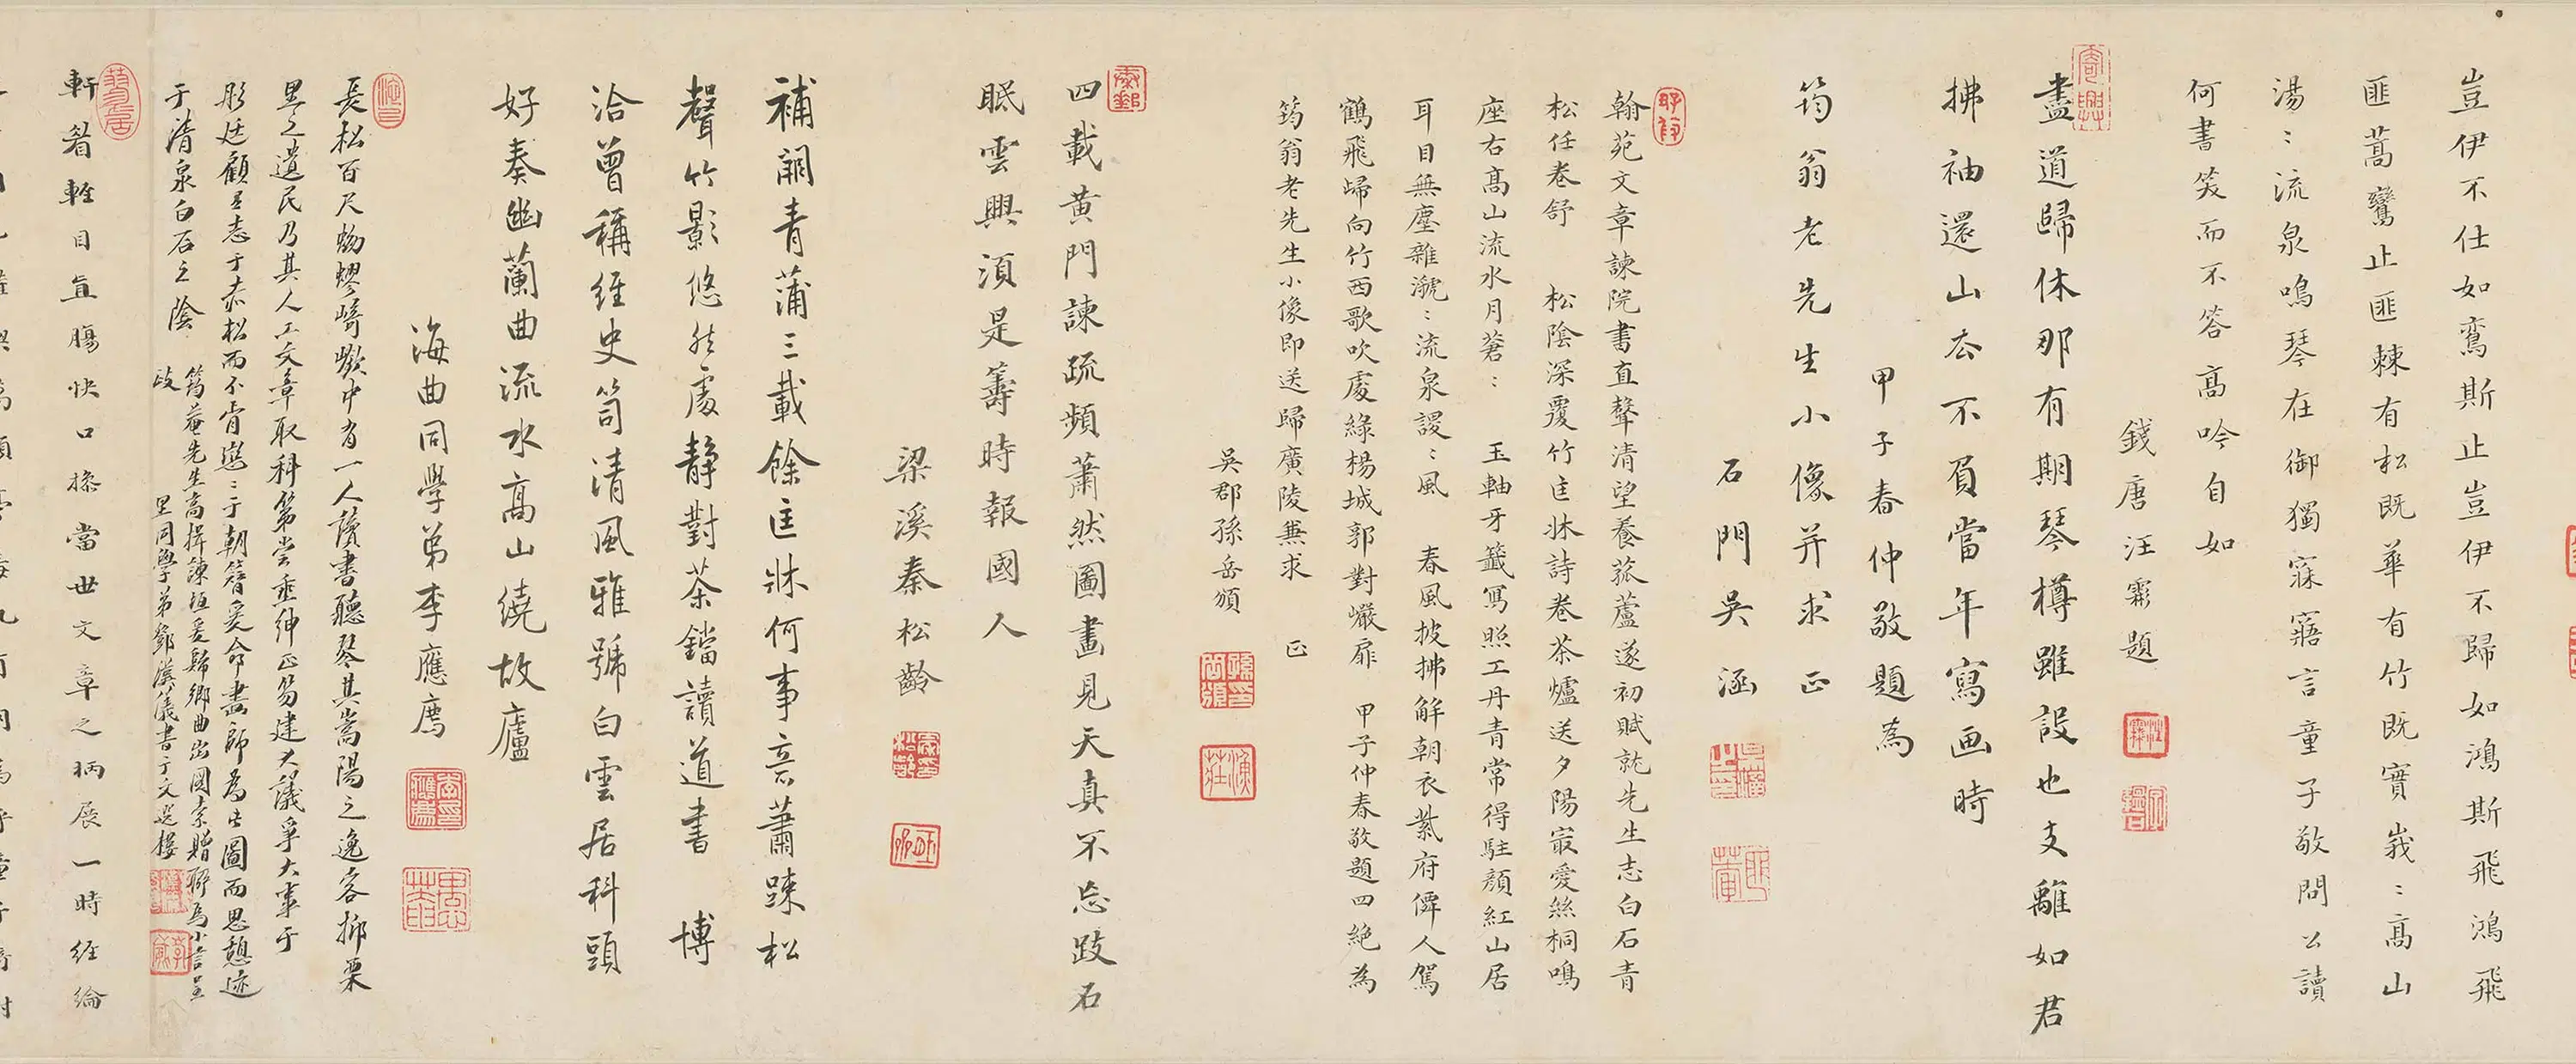 豈伊不仕如鸞斯止豈伊不歸如鴻斯飛鴻飛
匪蒿鸞止匪棘有松既華有竹既實峩〻高山
湯〻流泉鳴琴在御獨寐寤言童子敬問公讀
何書笑而不答高吟自如
錢唐汪霦題
盡道歸休那有期琴樽雖設也支離如君
拂袖還山去不負當年寫画時
甲子春仲敬題為
筠翁老先生小像并求正
石門吳涵
翰苑文章諫院書直聲清望養菰蘆遂初賦就先生志白石青
松任卷舒 松陰深覆竹匡牀詩卷茶爐送夕陽最愛絲桐鳴
座右高山流水月蒼〻 玉軸牙籤寫照工丹青常得駐顏紅山居
耳目無塵雜㶁〻流泉謖〻風 春風披拂解朝衣紫府僊人駕
鶴飛歸向竹西歌吹處綠楊城郭對巖扉 甲子仲春敬題四絕為
筠翁老先生小像即送歸廣陵兼求 正
吳郡孫岳頒
四載黃門諫疏頻蕭然圖畫見天真不忘跂石
眠雲興須是籌時報國人
梁溪秦松齡
補闕青蒲三載餘匡牀何事意蕭踈松
聲竹影悠然處靜對茶鐺讀道書 博
洽曾稱經史笥清風雅號白雲居科頭
好奏幽蘭曲流水高山繞故廬
海曲同學弟李應廌
長松百尺蚴蟉崎嶔中有一人讀書聽琴其嵩陽之逸客抑栗
里之遺民乃其人工文章取科第嘗垂紳正笏建大議爭大事于
彤廷顧其志于赤松而不肯戀〻于朝簪爰命畫師為此圖而思憩迹
于清泉白石之陰
筠菴先生高揖諫垣爰歸鄉曲出圖索贈聊為小言呈
政 里同學弟鄧漢儀書于文選樓
軒者輊目直腸快口操當世文章之柄展一時經綸